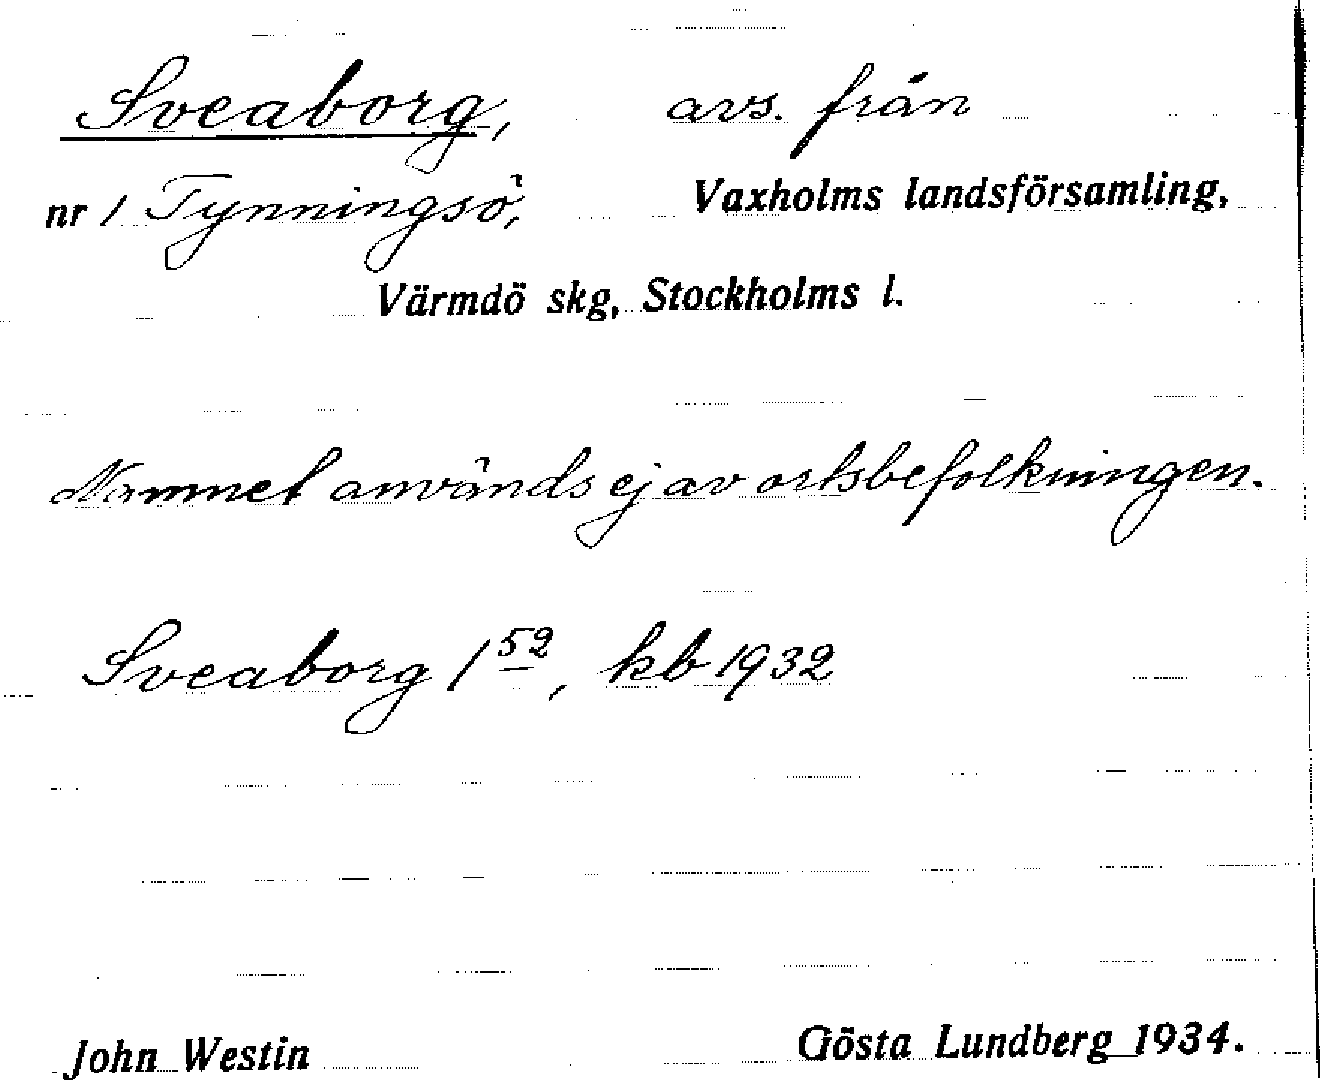 Sveaborg, avs. från
nr 1 Tynningsö, Vaxholms landsförsamling,
Värmdö skg, Stockholms l.
Namnet används ej av ortsbefolkningen.
Sveaborg 1 52, kb 1932
John Westin Gösta Lundberg 1934.